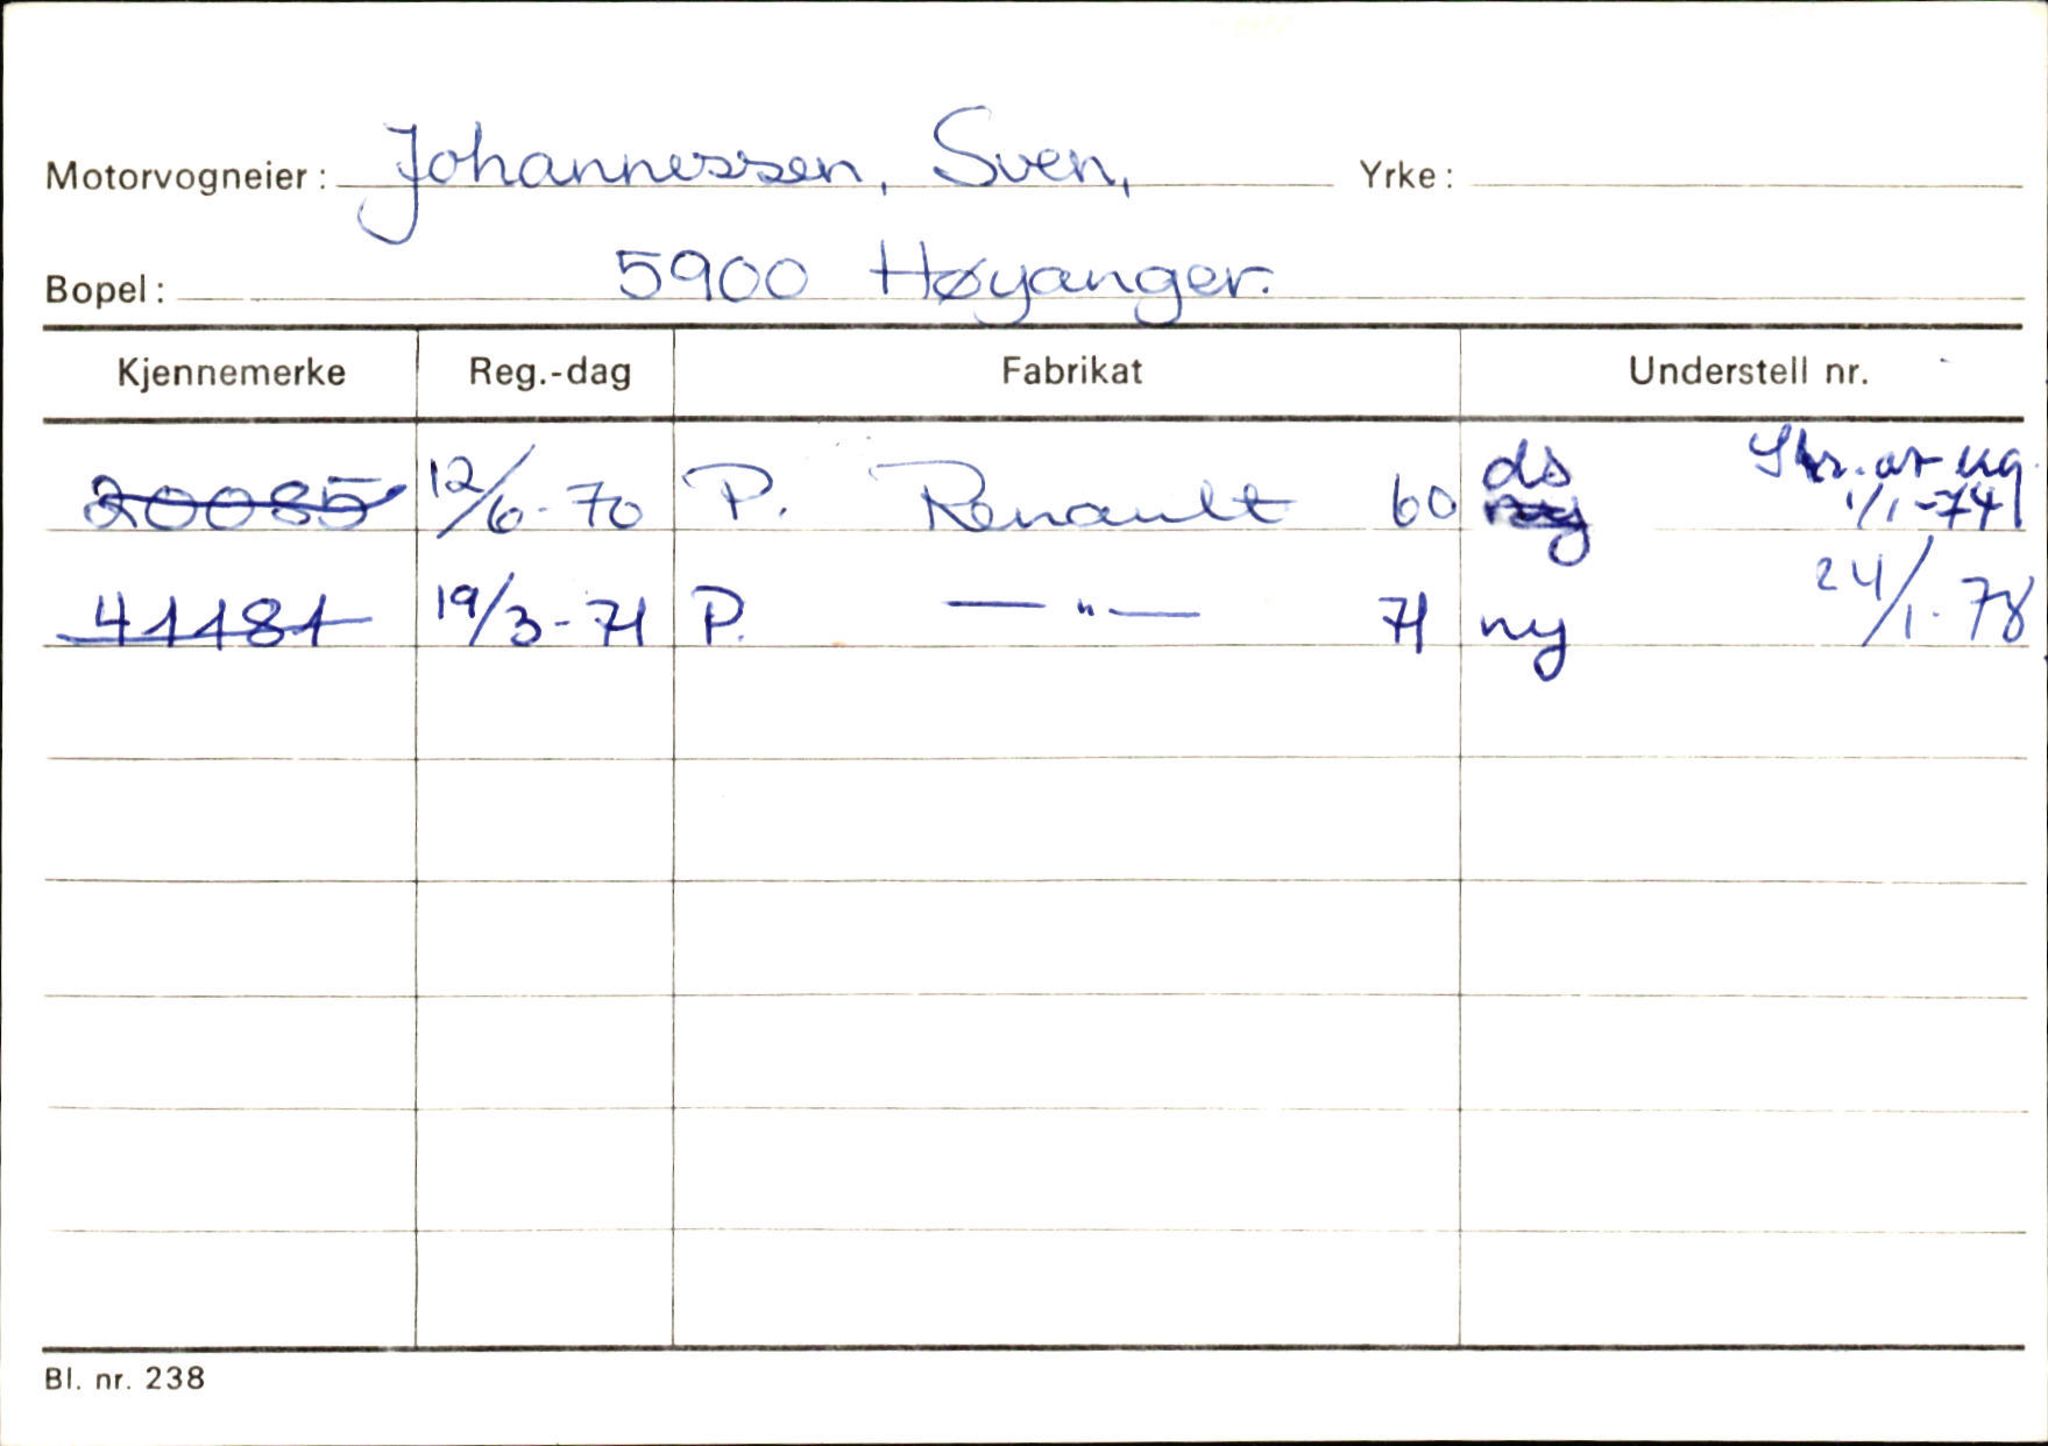 Motorvogneier: Johannessen, Sven, Yrke:
Bopel: 5900 Høyanger.
Kjennemerke Reg.-dag Fabrikat Understell nr.
20085 12/6-70 P. Renault 60 ds ny Skr. av reg. 1/1-74
41181 19/3-71 P. —"— 71 ny 24/1-78
Bl. nr. 238